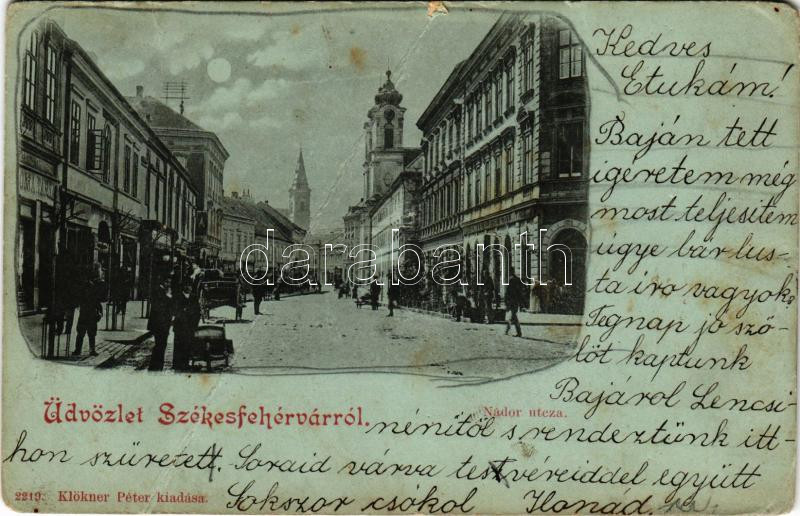 Kedves
Etukám!
Baján tett
igeretem még
most teljesitem
ugye bár lus-
ta iro vagyok?
Tegnap jó szö-
löt kaptunk
Bajárol Lencsi-
nénitöl s rendeztünk itt-
hon szüretett. Soraid várva testvéreiddel együtt
Sokszor csókol Ilonád.
darabanth
Üdvözlet Székesfehérvárról.
Nádor utcza.
2219. Klökner Péter kiadása.